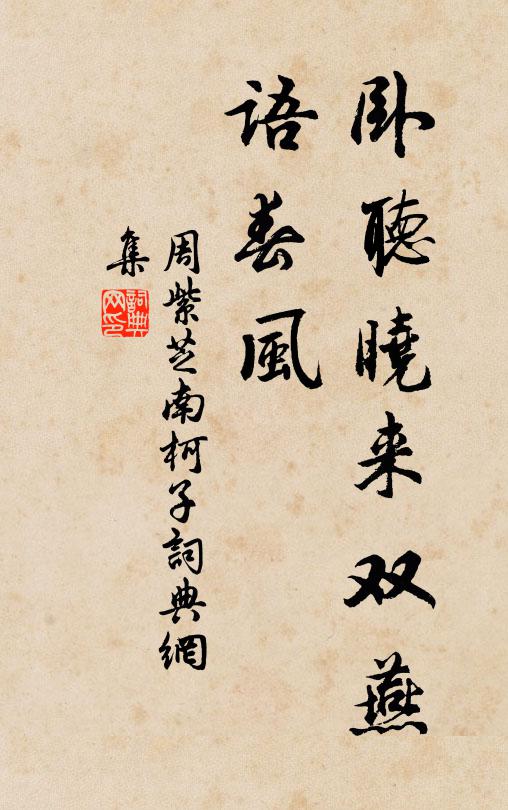 卧聽曉来双燕
語春風
周紫芝南柯子詞典網
集
詞典
网印